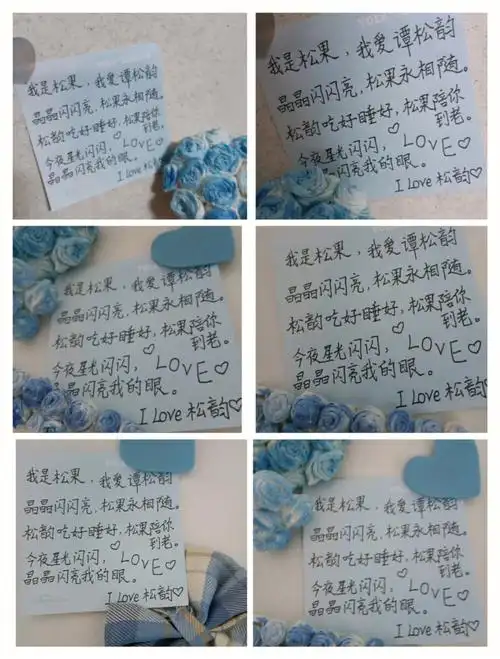 我是松果，我爱谭松韵
晶晶闪闪亮，松果永相随。
松韵吃好睡好，松果陪你
到老。
今夜星光闪闪，LOVE♡
晶晶闪亮我的眼。
I Love 松韵
我是松果，我爱谭松韵
晶晶闪闪亮，松果永相随。
松韵吃好睡好，松果陪你
到老。
今夜星光闪闪，LOVE♡
晶晶闪亮我的眼。
I Love 松韵
我是松果，我爱谭松韵
晶晶闪闪亮，松果永相随。
松韵吃好睡好，松果陪你
到老。
今夜星光闪闪，LOVE♡
晶晶闪亮我的眼。
I Love 松韵♡
我是松果，我爱谭松韵
晶晶闪闪亮，松果永相随。
松韵吃好睡好，松果陪你
到老。
今夜星光闪闪，LOVE♡
晶晶闪亮我的眼。
I Love 松韵♡
我是松果，我爱谭松韵
晶晶闪闪亮，松果永相随。
松韵吃好睡好，松果陪你
到老。
今夜星光闪闪，LOVE♡
晶晶闪亮我的眼。
I Love 松韵♡
我是松果，我爱谭松韵
晶晶闪闪亮，松果永相随。
松韵吃好睡好，松果陪你
到老。
今夜星光闪闪，LOVE♡
晶晶闪亮我的眼。
I Love 松韵♡